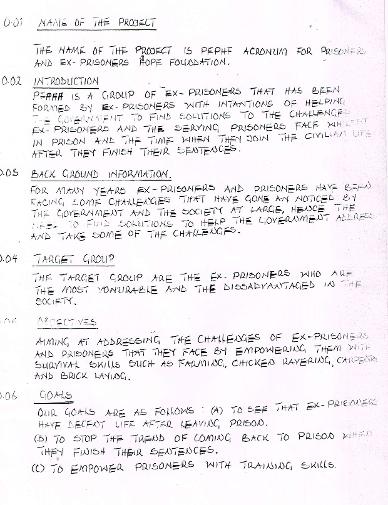 0.01 NAME OF THE PROJECT
THE NAME OF THE PROJECT IS PEPHF ACRONUM FOR PRISONERS
AND EX-PRISONERS HOPE FOUNDATION.
0.02 INTRODUCTION
IS A GROUP OF EX-PRISONERS THAT HAS BEEN
FORMED BY EX-PRISONERS WITH INTANTIONS OF HELPING
THE GOVERNMENT TO FIND SOLUTIONS TO THE CHALLENGES
EX-PRISONERS AND THE SERVING PRISONERS FACE WHILST
IN PRISON AND THE TIME WHEN THEY JOIN THE CIVILIAN LIFE
AFTER THEY FINISH THEIR SENTENCES.
0.03 BACK GROUND INFORMATION.
FOR MANY YEARS EX-PRISONERS AND PRISONERS HAVE BEEN
FACING SOME CHALLENGES THAT HAVE GONE AN NOTICED BY
THE GOVERNMENT AND THE SOCIETY AT LARGE, HENCE THE
NEED TO FIND SOLUTIONS TO HELP THE GOVERNMENT ADDRESS
AND TAKE SOME OF THE CHALLENGES.
0.04 TARGET GROUP
THE TARGET GROUP ARE THE EX-PRISONERS WHO ARE
THE MOST VONURABLE AND THE DISSADVANTAGED IN THE
SOCIETY.
AIMING AT ADDRESSING THE CHALLENGES OF EX-PRISONERS
AND PRISONERS THAT THEY FACE BY EMPOWERING THEM WITH
SURVIVAL SKILLS SUCH AS FARMING, CHICKEN RAVERING, CARPENTRY
AND BRICK LAYING.
0.06 GOALS
OUR GOALS ARE AS FOLLOWS: (A) TO SEE THAT EX-PRISONERS
HAVE DECENT LIFE AFTER LEAVING PRISON.
(B) TO STOP THE TREND OF COMING BACK TO PRISON WHEN
THEY FINISH THEIR SENTENCES.
(C) TO EMPOWER PRISONERS WITH TRAINING SKILLS.